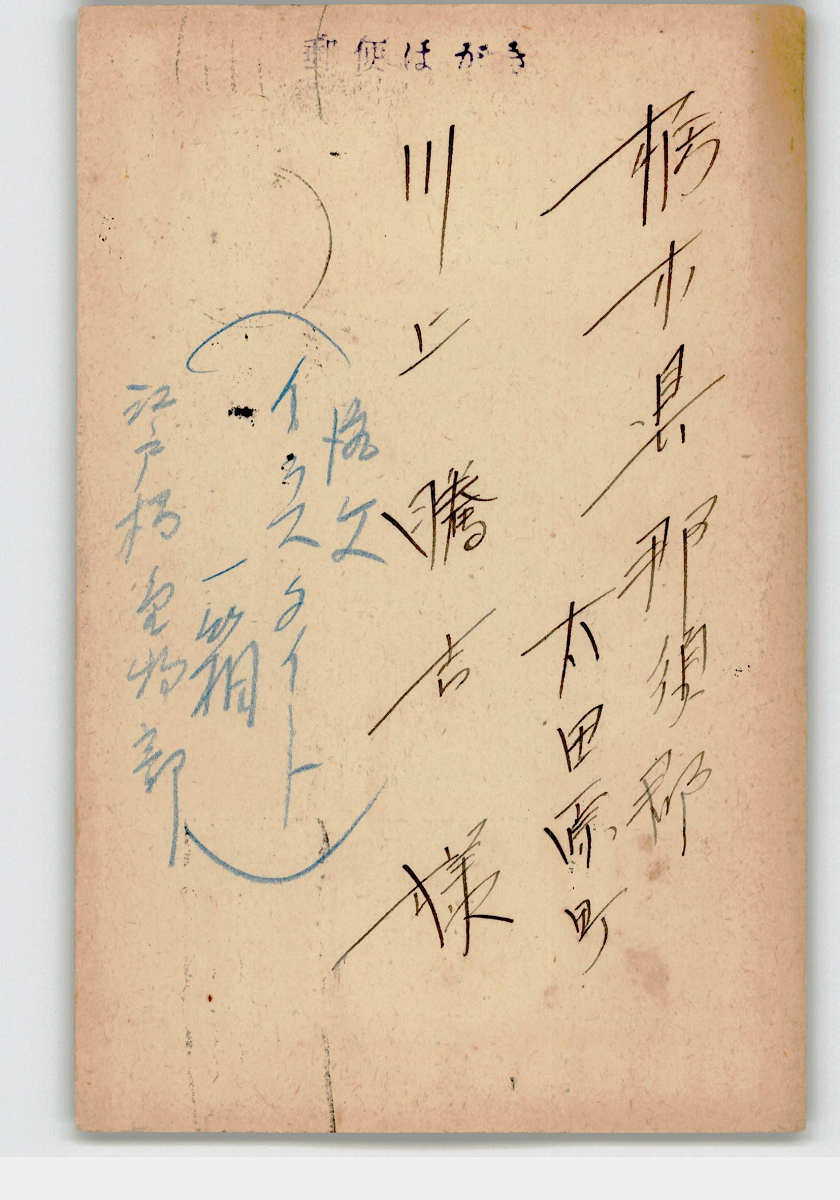 郵便はがき
栃木県那須郡
太田原町
川上騰吉様
落欠
イラスタイト
一箱
江戸橋皇物部